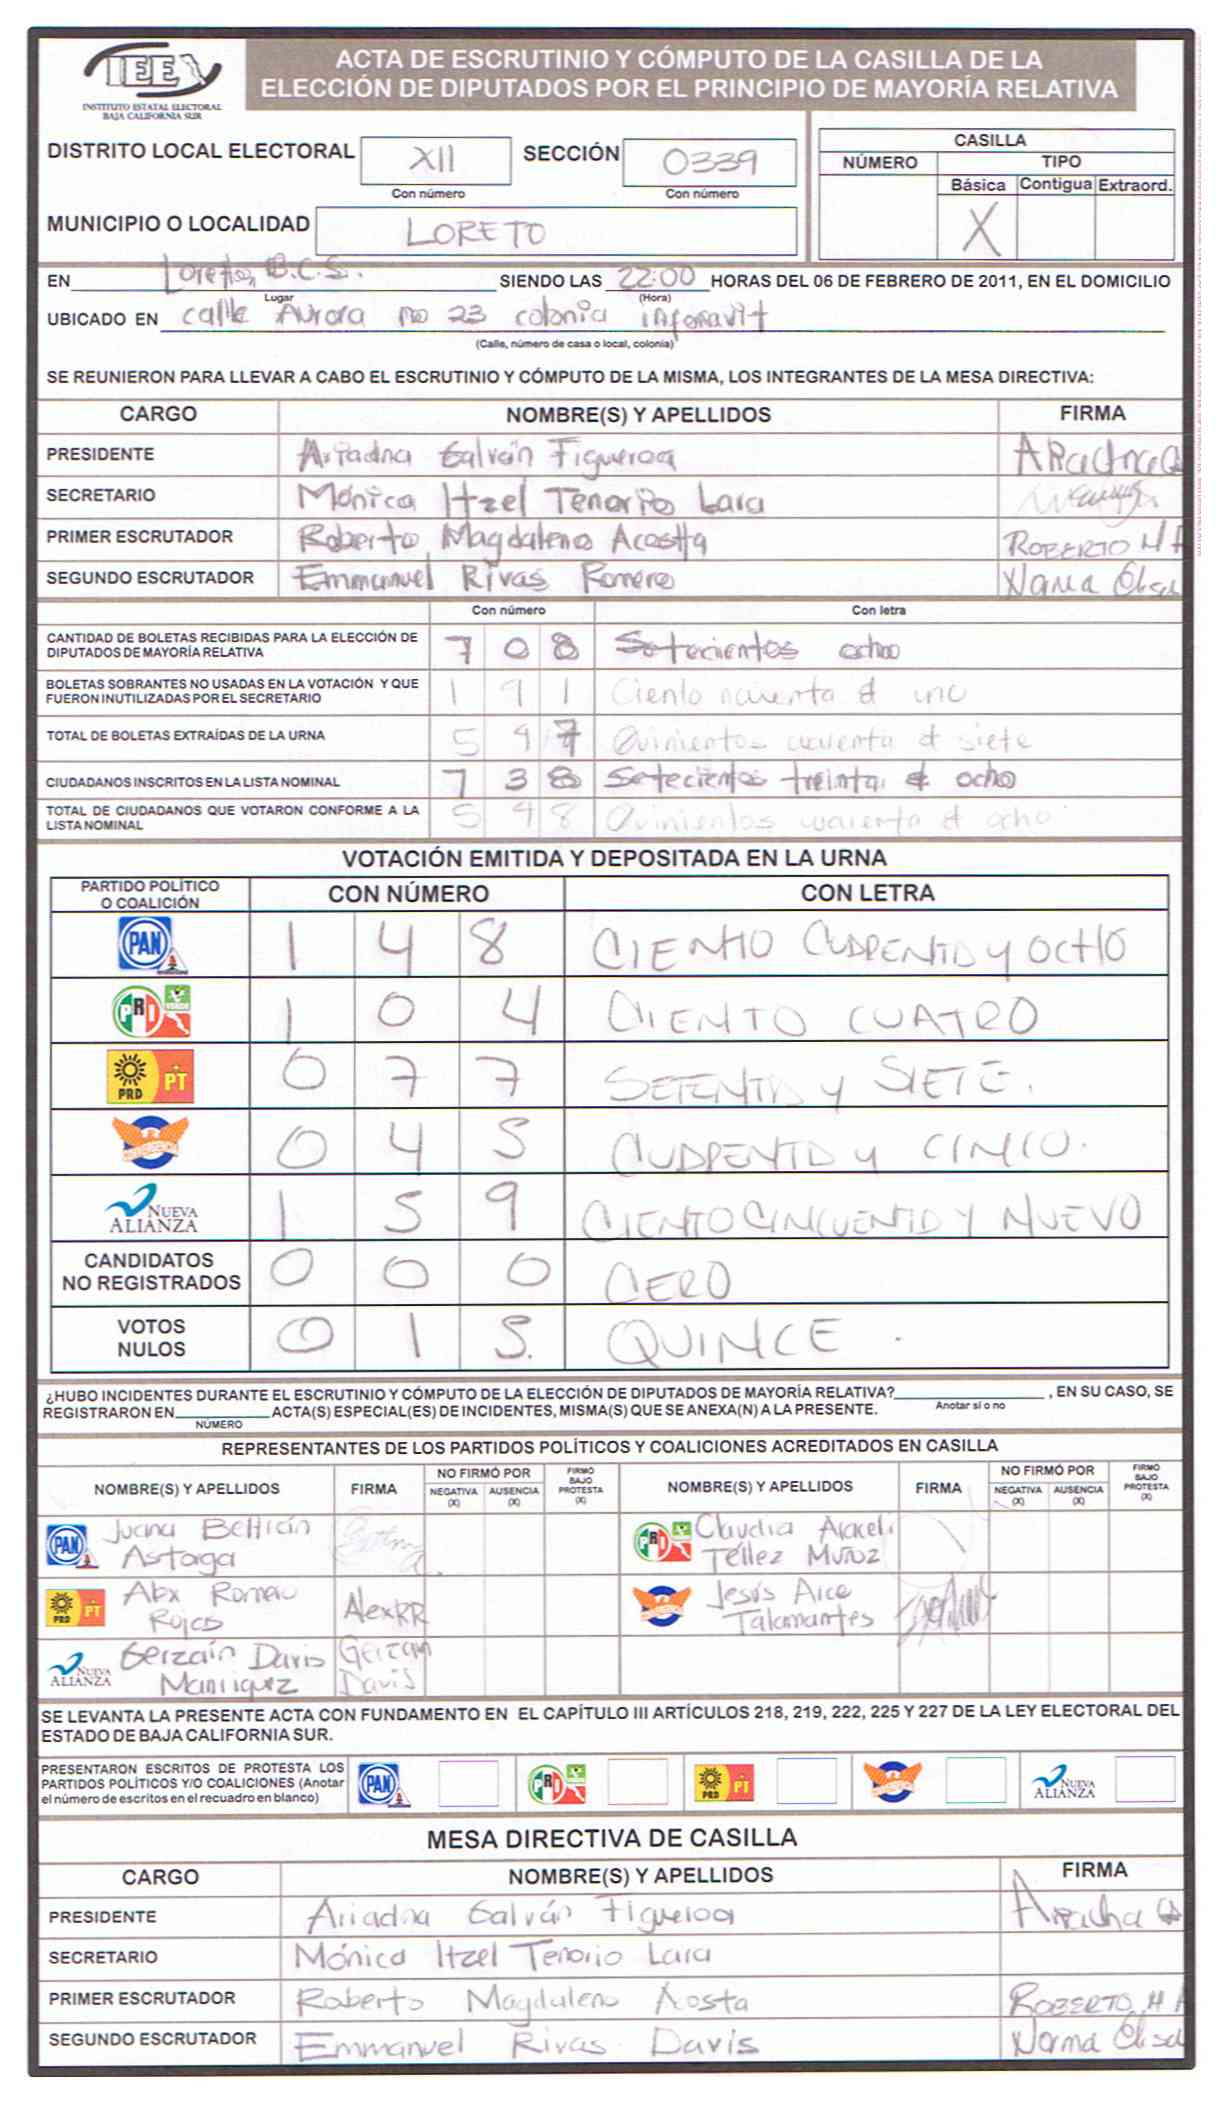 IEE
INSTITUTO ESTATAL ELECTORAL
BAJA CALIFORNIA SUR
ACTA DE ESCRUTINIO Y CÓMPUTO DE LA CASILLA DE LA
ELECCIÓN DE DIPUTADOS POR EL PRINCIPIO DE MAYORÍA RELATIVA
DISTRITO LOCAL ELECTORAL XII SECCIÓN 0339
Con número Con número
MUNICIPIO O LOCALIDAD LORETO
CASILLA
NÚMERO TIPO
Básica Contigua Extraord.
X
EN Loreto, B.C.S. SIENDO LAS 22:00 HORAS DEL 06 DE FEBRERO DE 2011, EN EL DOMICILIO
Lugar (Hora)
UBICADO EN calle Aurora no 23 colonia infonavit
(Calle, número de casa o local, colonia)
SE REUNIERON PARA LLEVAR A CABO EL ESCRUTINIO Y CÓMPUTO DE LA MISMA, LOS INTEGRANTES DE LA MESA DIRECTIVA:
CARGO NOMBRE(S) Y APELLIDOS FIRMA
PRESIDENTE Ariadna Galván Figueroa
SECRETARIO Mónica Itzel Tenorio Lara
PRIMER ESCRUTADOR Roberto Magdaleno Acosta ROBERTO M A
SEGUNDO ESCRUTADOR Emmanuel Rivas Romero
Con número Con letra
CANTIDAD DE BOLETAS RECIBIDAS PARA LA ELECCIÓN DE
DIPUTADOS DE MAYORÍA RELATIVA 7 0 8 Setecientos ocho
BOLETAS SOBRANTES NO USADAS EN LA VOTACIÓN Y QUE
FUERON INUTILIZADAS POR EL SECRETARIO 1 9 1 Ciento uno
TOTAL DE BOLETAS EXTRAÍDAS DE LA URNA 5 4 7 Quinientos siete
CIUDADANOS INSCRITOS EN LA LISTA NOMINAL 7 3 8 Setecientos treinta ocho
TOTAL DE CIUDADANOS QUE VOTARON CONFORME A LA
LISTA NOMINAL 5 4 8 Quinientos ocho
VOTACIÓN EMITIDA Y DEPOSITADA EN LA URNA
PARTIDO POLÍTICO
O COALICIÓN CON NÚMERO CON LETRA
PAN 1 4 8 CIENTO CUARENTA y OCHO
PRI VERDE 1 0 4 CIENTO CUATRO
PRD PT 0 7 7 SETENTA y SIETE.
CONVERGENCIA 0 4 5 CUARENTA y CINCO.
NUEVA ALIANZA 1 5 9 CIENTO CINCUENTA Y NUEVO
CANDIDATOS
NO REGISTRADOS 0 0 0 CERO
VOTOS
NULOS 0 1 5. QUINCE .
¿HUBO INCIDENTES DURANTE EL ESCRUTINIO Y CÓMPUTO DE LA ELECCIÓN DE DIPUTADOS DE MAYORÍA RELATIVA? , EN SU CASO, SE
Anotar sí o no
REGISTRARON EN ACTA(S) ESPECIAL(ES) DE INCIDENTES, MISMA(S) QUE SE ANEXA(N) A LA PRESENTE.
NÚMERO
REPRESENTANTES DE LOS PARTIDOS POLÍTICOS Y COALICIONES ACREDITADOS EN CASILLA
NOMBRE(S) Y APELLIDOS FIRMA NO FIRMÓ POR NEGATIVA (X) AUSENCIA (X) FIRMÓ BAJO PROTESTA (X) NOMBRE(S) Y APELLIDOS FIRMA NO FIRMÓ POR NEGATIVA (X) AUSENCIA (X) FIRMÓ BAJO PROTESTA (X)
PAN Juana Beltrán PRI Claudia Araceli
Astorga Téllez Muñoz
PRD PT Alex Romero AlexRR Jesús Arce
Rojas Talamantes
NUEVA ALIANZA Gerzaín Davis Gerzain
Manriquez Davis
SE LEVANTA LA PRESENTE ACTA CON FUNDAMENTO EN EL CAPÍTULO III ARTÍCULOS 218, 219, 222, 225 Y 227 DE LA LEY ELECTORAL DEL
ESTADO DE BAJA CALIFORNIA SUR.
PRESENTARON ESCRITOS DE PROTESTA LOS
PARTIDOS POLÍTICOS Y/O COALICIONES (Anotar
el número de escritos en el recuadro en blanco) PAN PRI PRD PT NUEVA ALIANZA
MESA DIRECTIVA DE CASILLA
CARGO NOMBRE(S) Y APELLIDOS FIRMA
PRESIDENTE Ariadna Galván Figueroa
SECRETARIO Mónica Itzel Tenorio Lara
PRIMER ESCRUTADOR Roberto Magdaleno Acosta ROBERTO M A
SEGUNDO ESCRUTADOR Emmanuel Rivas Davis Norma